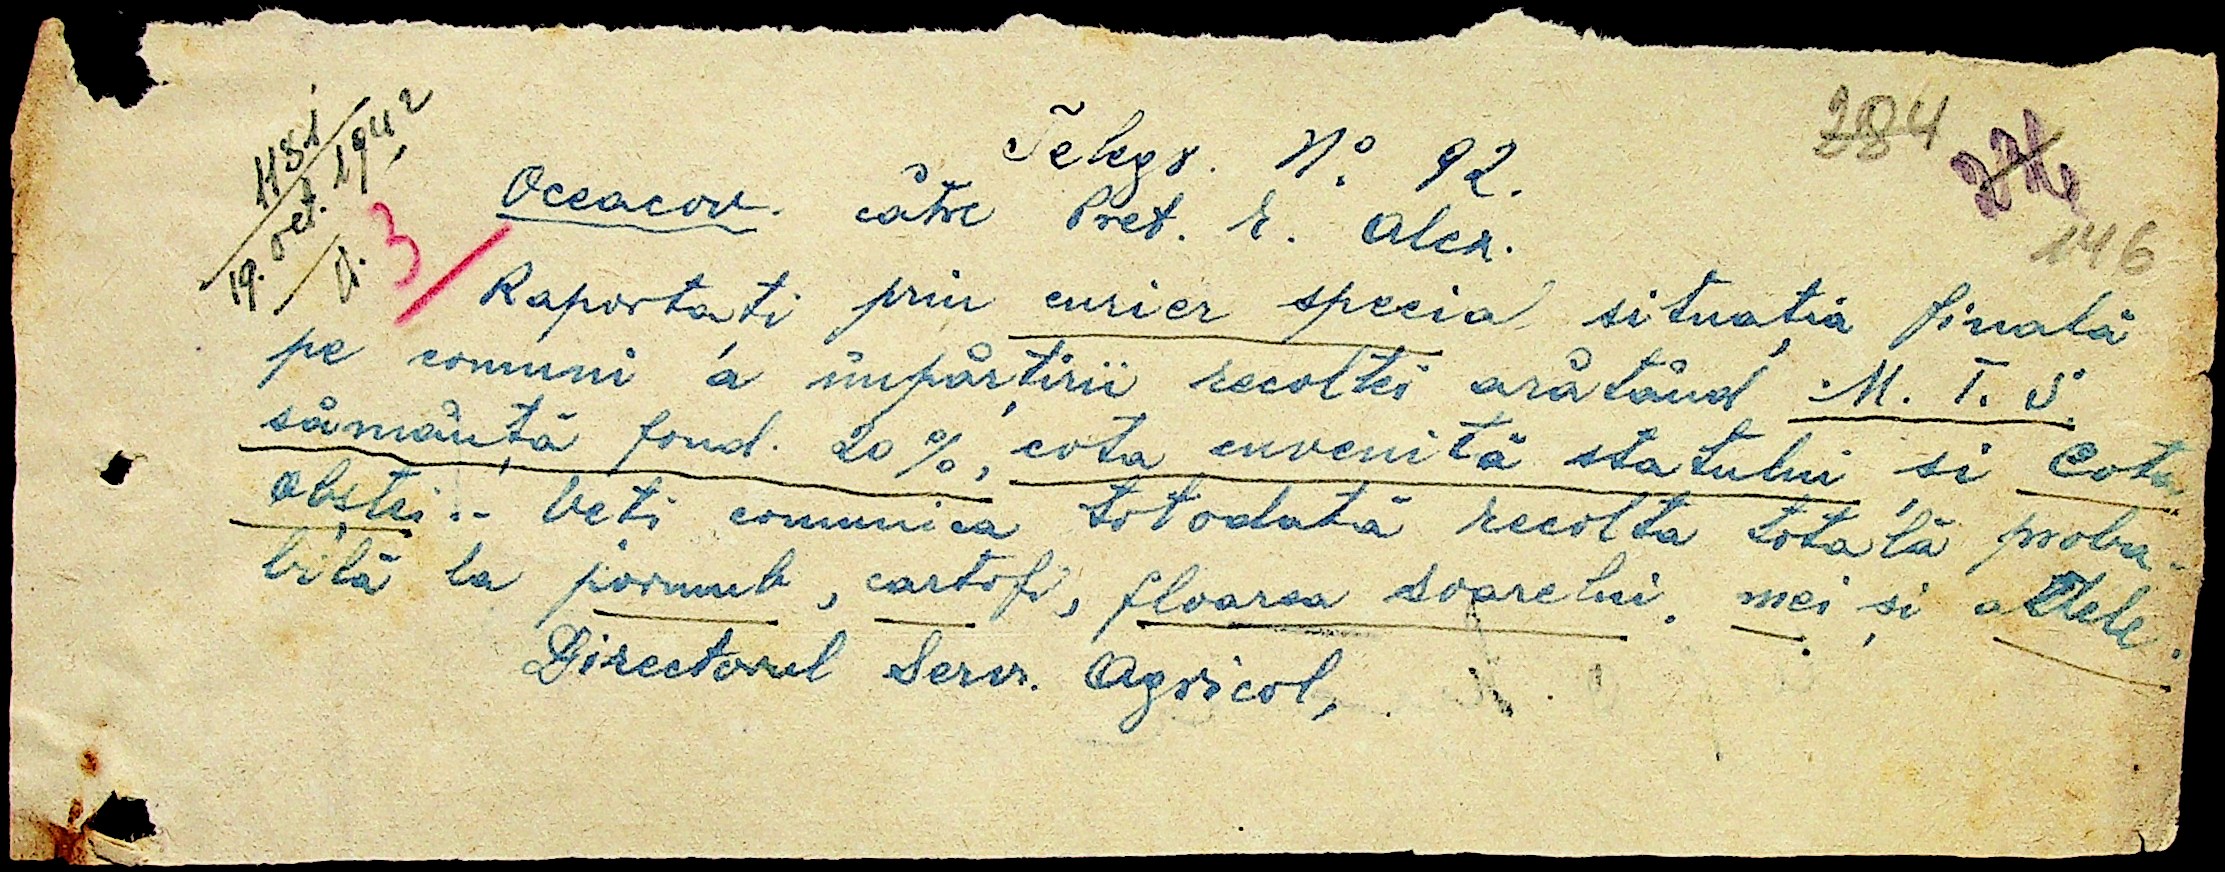 1181
19. oct. 1942
3
284
146
Telegr. No. 92.
Oceacov. către Pret. r. Alex.
Raportati prin curier special situația finală
pe comuni a împărțirii recoltei arătând M. T. S.
sămânță fond. 20%, cota cuvenită statului si Cota
Obștei.- Veti comunica totodată recolta totală proba-
bilă la pormub, cartofi, floarea soarelui. mei și altele.
Directorul Serv. Agricol,